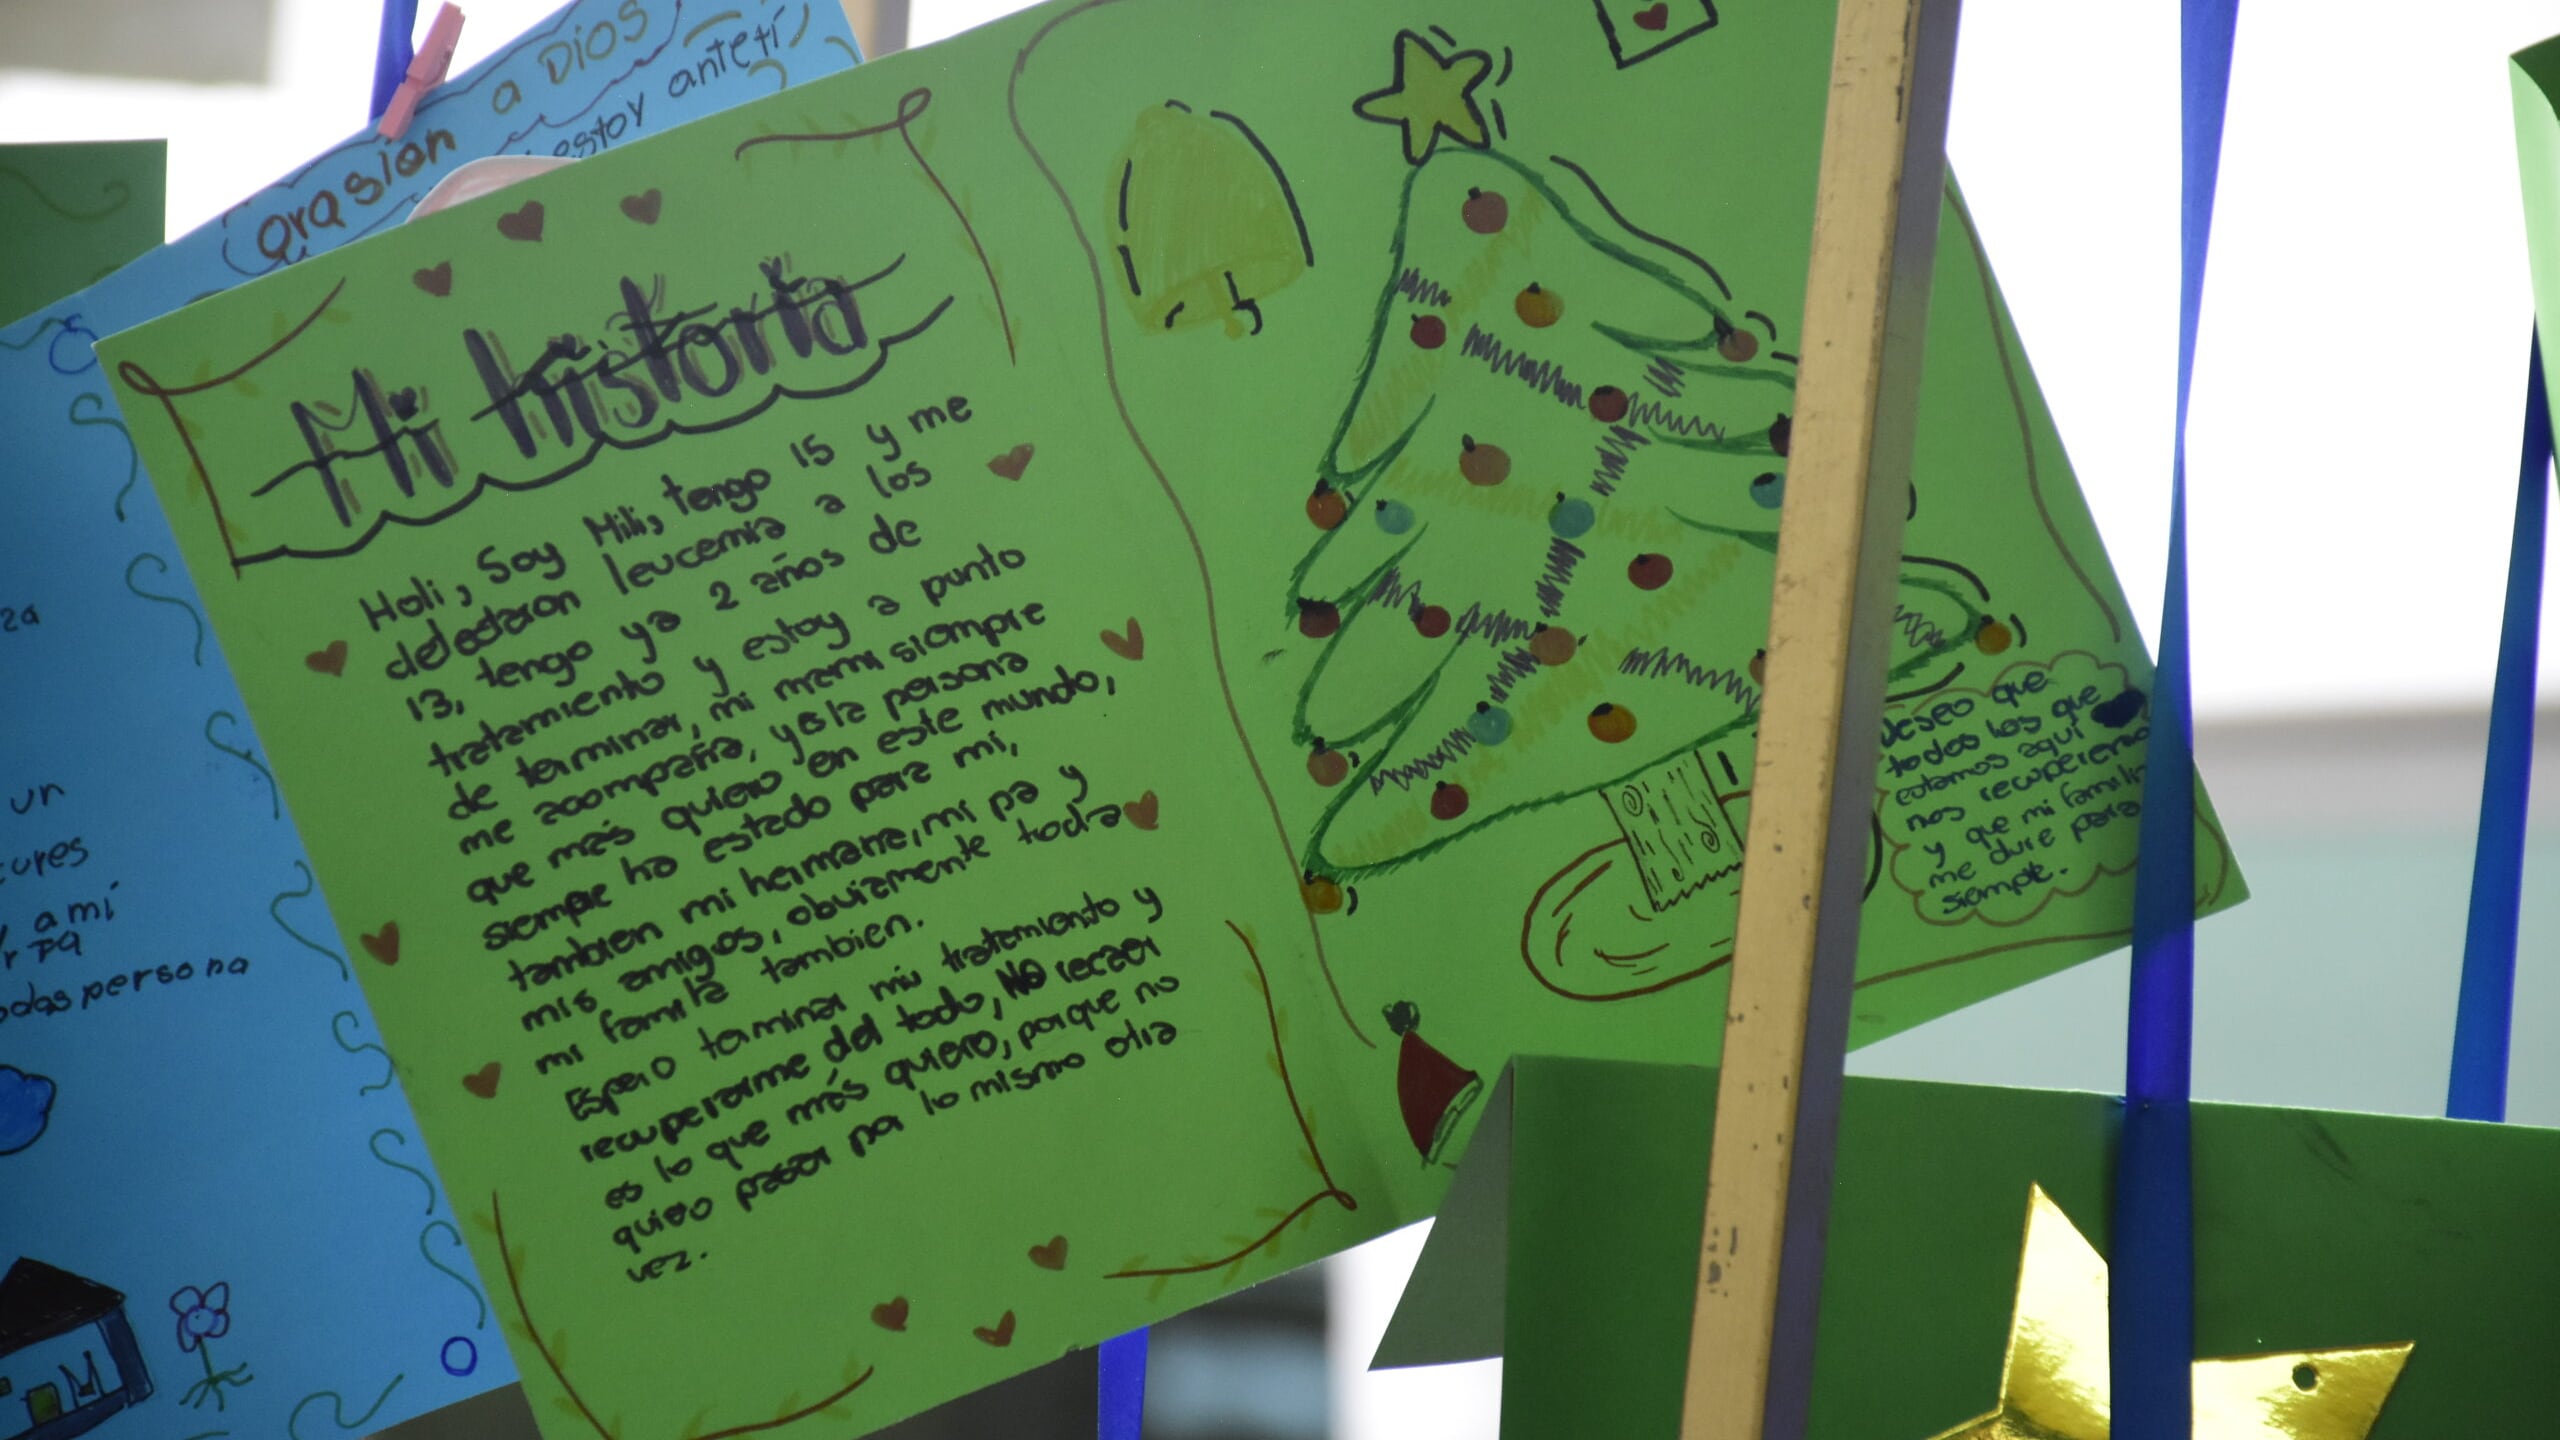 orasion a Dios
estoy anteti
un
cures
a mi
todas persona
Mi historia
Holi, Soy Mili, tengo 15 y me
detectaron leucemia a los
13, tengo ya 2 años de
tratamiento y estoy a punto
de terminar, mi mami siempre
me acompaña, yes la persona
que más quiero en este mundo,
siempre ha estado para mi,
tambien mi hermana, mi pa y
mis amigos, obviamente toda
mi familia tambien.
Espero terminar mi tratamiento y
recuperarme del todo, NO recaer
es lo que más quiero, porque no
quiero pasar por lo mismo otra
vez.
Deseo que
todos los que
estamos aquí
nos recuperemos
y que mi familia
me dure para
siempre.